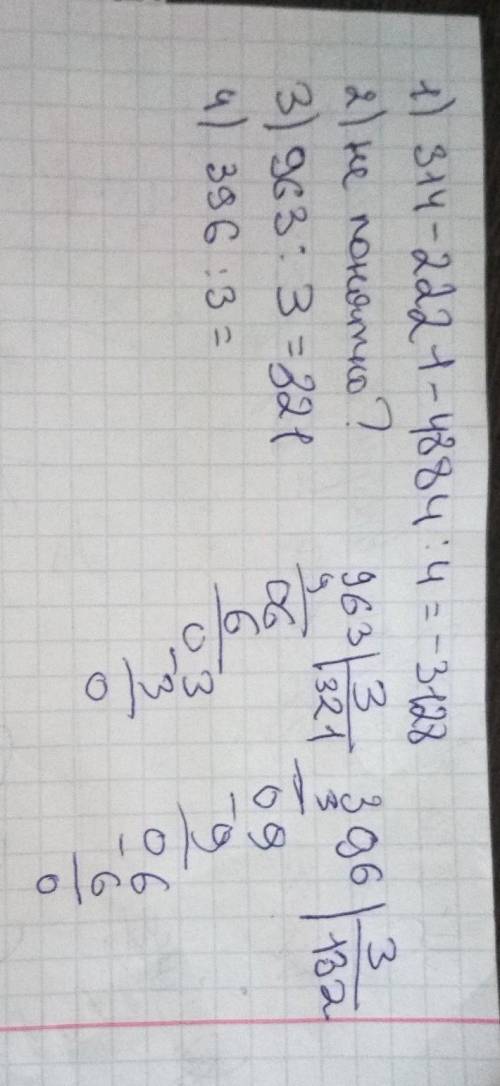 1) 314-2221-4884:4=-3128
2) не понятно?
3) 963:3=321
4) 396:3=
963|3
9 321
06
6
03
-3
0
396|3
3 132
09
-9
06
-6
0